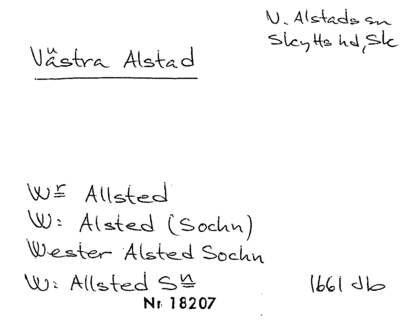 V. Alstads sn
Skytts hd, Sk
Västra Alstad
Wr Allsted
W: Alsted (Sochn)
Wester Alsted Sochn
W: Allsted Sn
1661 db
Nr 18207